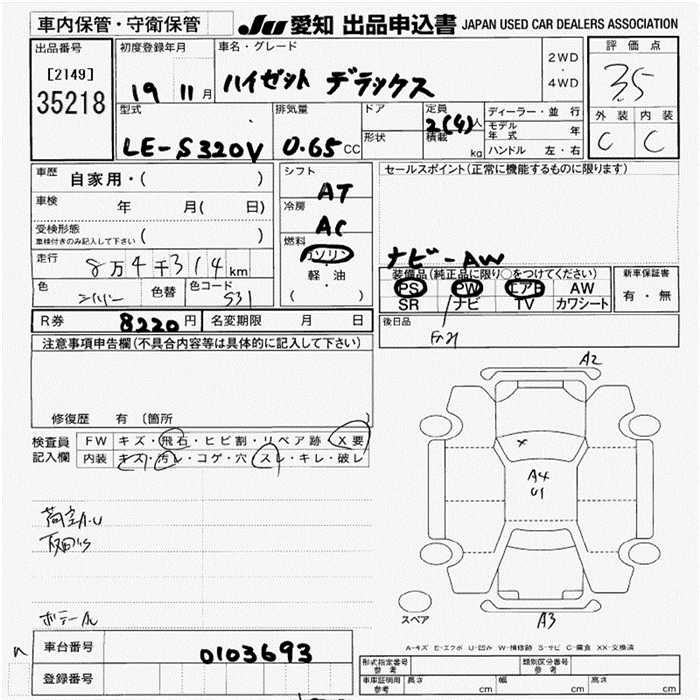 車内保管・守衛保管 JU 愛知 出品申込書 JAPAN USED CAR DEALERS ASSOCIATION
出品番号 初度登録年月 車名・グレード 評価点
[2149] 35218 19 11月 ハイゼット デラックス 2WD・4WD 3.5
型式 排気量 ドア 定員 2(4)人 ディーラー・並行 外装 内装
形状 積載 kg モデル年式 年
LE-S320V 0.65cc ハンドル 左・右 C C
車歴 自家用・( ) シフト AT セールスポイント(正常に機能するものに限ります)
車検 年 月( 日) 冷房 AC
受検形態 車検付きのみ記入して下さい ( )
燃料 ガソリン
軽・油
( )
走行 8万4千314km
色 シルバー 色替 色コード S31
ナビ-AW
装備品(純正品に限り○をつけてください) 新車保証書
PS PW エアB AW 有・無
SR ナビ TV カワシート
R券 8220円 名変期限 月 日 後日品
注意事項申告欄(不具合内容等は具体的に記入して下さい)
修復歴 有 〔箇所 〕
検査員記入欄 FW キズ・飛石・ヒビ割・リペア跡・X要
内装 キズ・汚レ・コゲ・穴・スレ・キレ・破レ
荷室A.U
A2
×
A4
U1
A3
スペア
A-キズ E-エクボ U-凹み W-補修跡 S-サビ C-腐食 XX-交換済
車台番号 0103693
登録番号
形式指定番号 参考 類別区分番号 参考
車庫証明用 参考 長さ cm 幅 cm 高さ cm